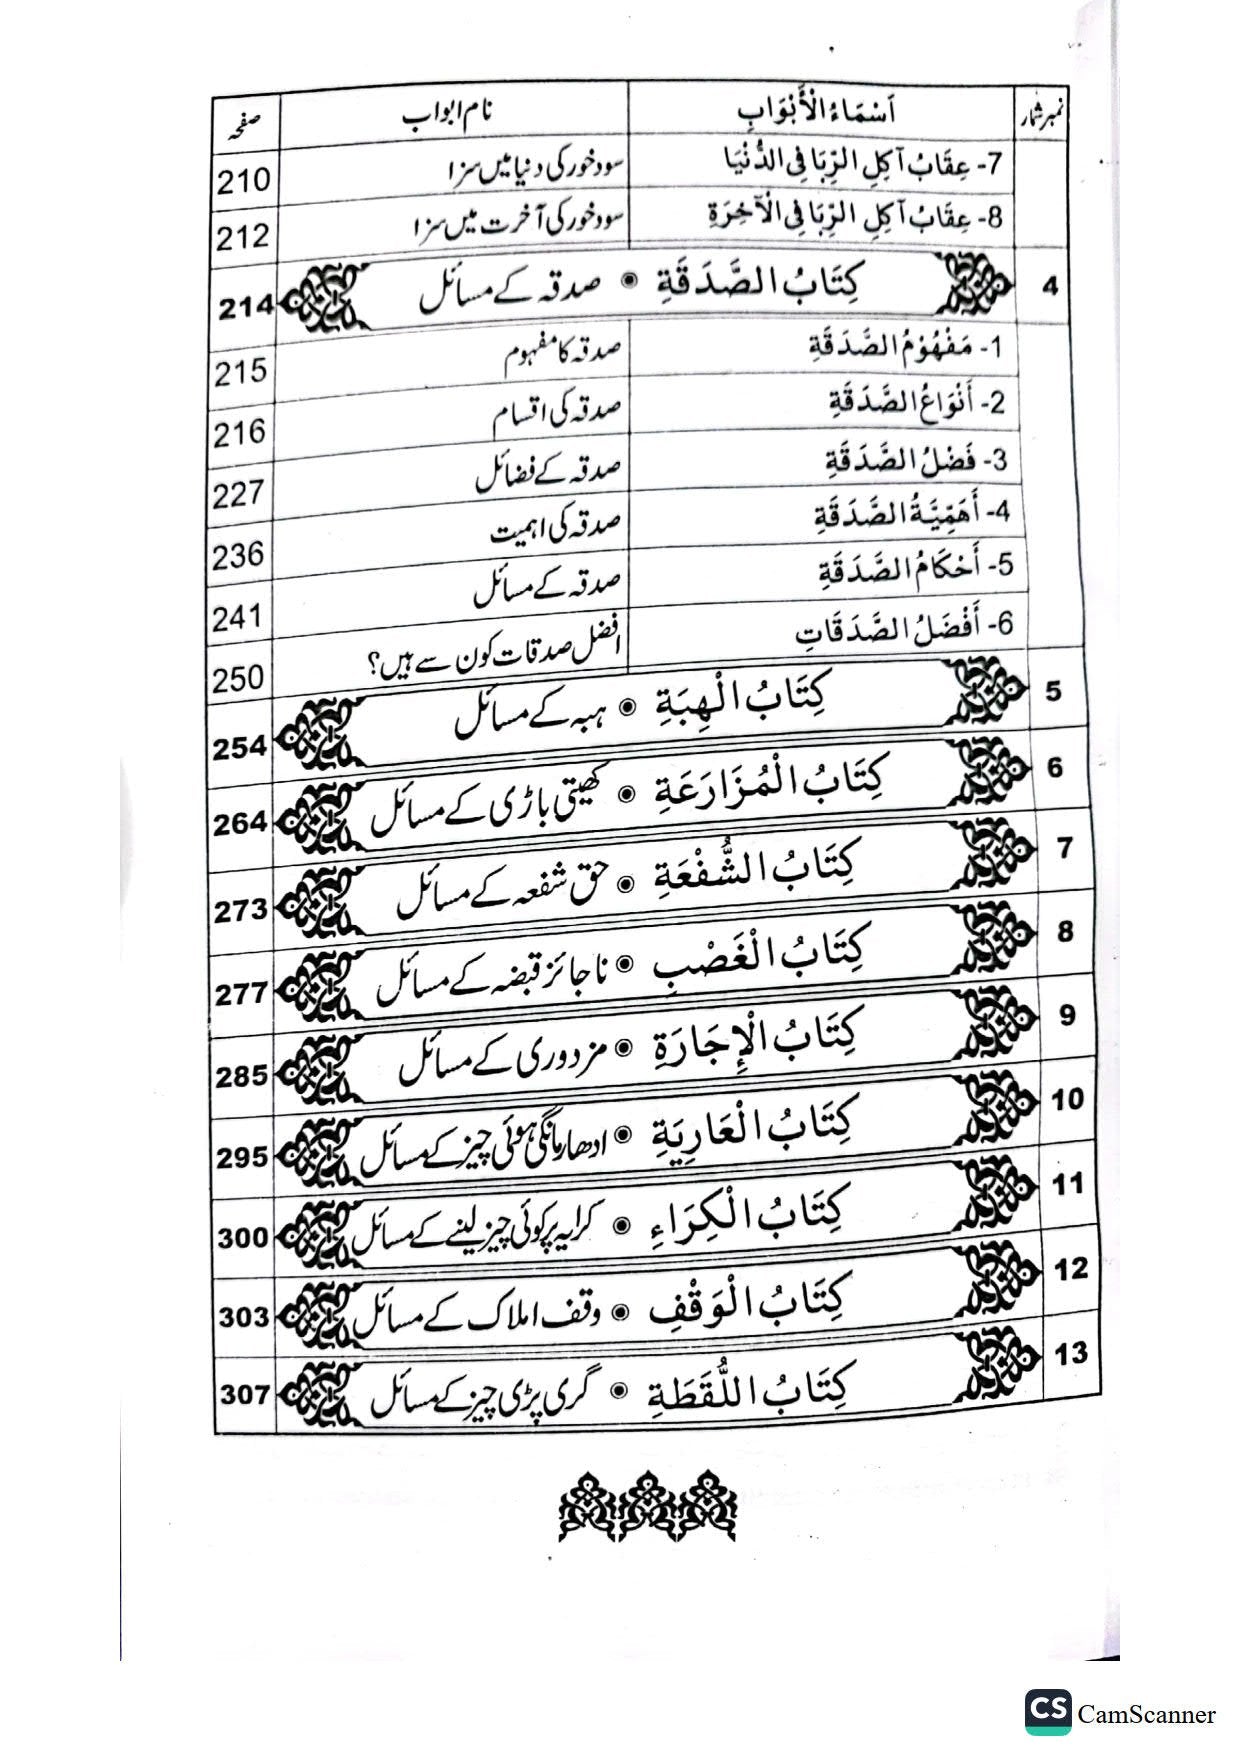 نمبر شمار اَسْمَاءُ الْأَبْوَابِ نام ابواب صفحہ
7- عِقَابُ آكِلِ الرِّبَا فِي الدُّنْيَا سود خور کی دنیا میں سزا 210
8- عِقَابُ آكِلِ الرِّبَا فِي الْآخِرَةِ سود خور کی آخرت میں سزا 212
4 كِتَابُ الصَّدَقَةِ ◉ صدقہ کے مسائل 214
1- مَفْهُوْمُ الصَّدَقَةِ صدقہ کا مفہوم 215
2- أَنْوَاعُ الصَّدَقَةِ صدقہ کی اقسام 216
3- فَضْلُ الصَّدَقَةِ صدقہ کے فضائل 227
4- أَهَمِّيَّةُ الصَّدَقَةِ صدقہ کی اہمیت 236
5- أَحْكَامُ الصَّدَقَةِ صدقہ کے مسائل 241
6- أَفْضَلُ الصَّدَقَاتِ افضل صدقات کون سے ہیں؟ 250
5 كِتَابُ الْهِبَةِ ◉ ہبہ کے مسائل 254
6 كِتَابُ الْمُزَارَعَةِ ◉ کھیتی باڑی کے مسائل 264
7 كِتَابُ الشُّفْعَةِ ◉ حق شفعہ کے مسائل 273
8 كِتَابُ الْغَصْبِ ◉ ناجائز قبضہ کے مسائل 277
9 كِتَابُ الْإِجَارَةِ ◉ مزدوری کے مسائل 285
10 كِتَابُ الْعَارِيَةِ ◉ ادھار مانگی ہوئی چیز کے مسائل 295
11 كِتَابُ الْكِرَاءِ ◉ کرایہ پر کوئی چیز لینے کے مسائل 300
12 كِتَابُ الْوَقْفِ ◉ وقف املاک کے مسائل 303
13 كِتَابُ اللُّقَطَةِ ◉ گری پڑی چیز کے مسائل 307
CS CamScanner